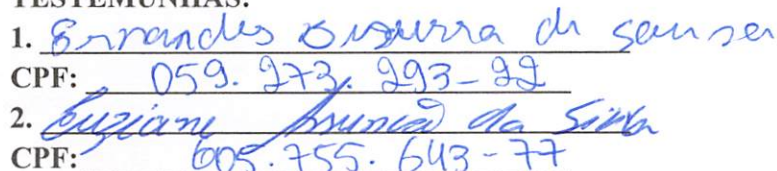 TESTEMUNHAS:
1. Ernandes Bezerra de Sousa
CPF: 059.273.293-22
2. Luziane Assunção da Silva
CPF: 605.755.643-77